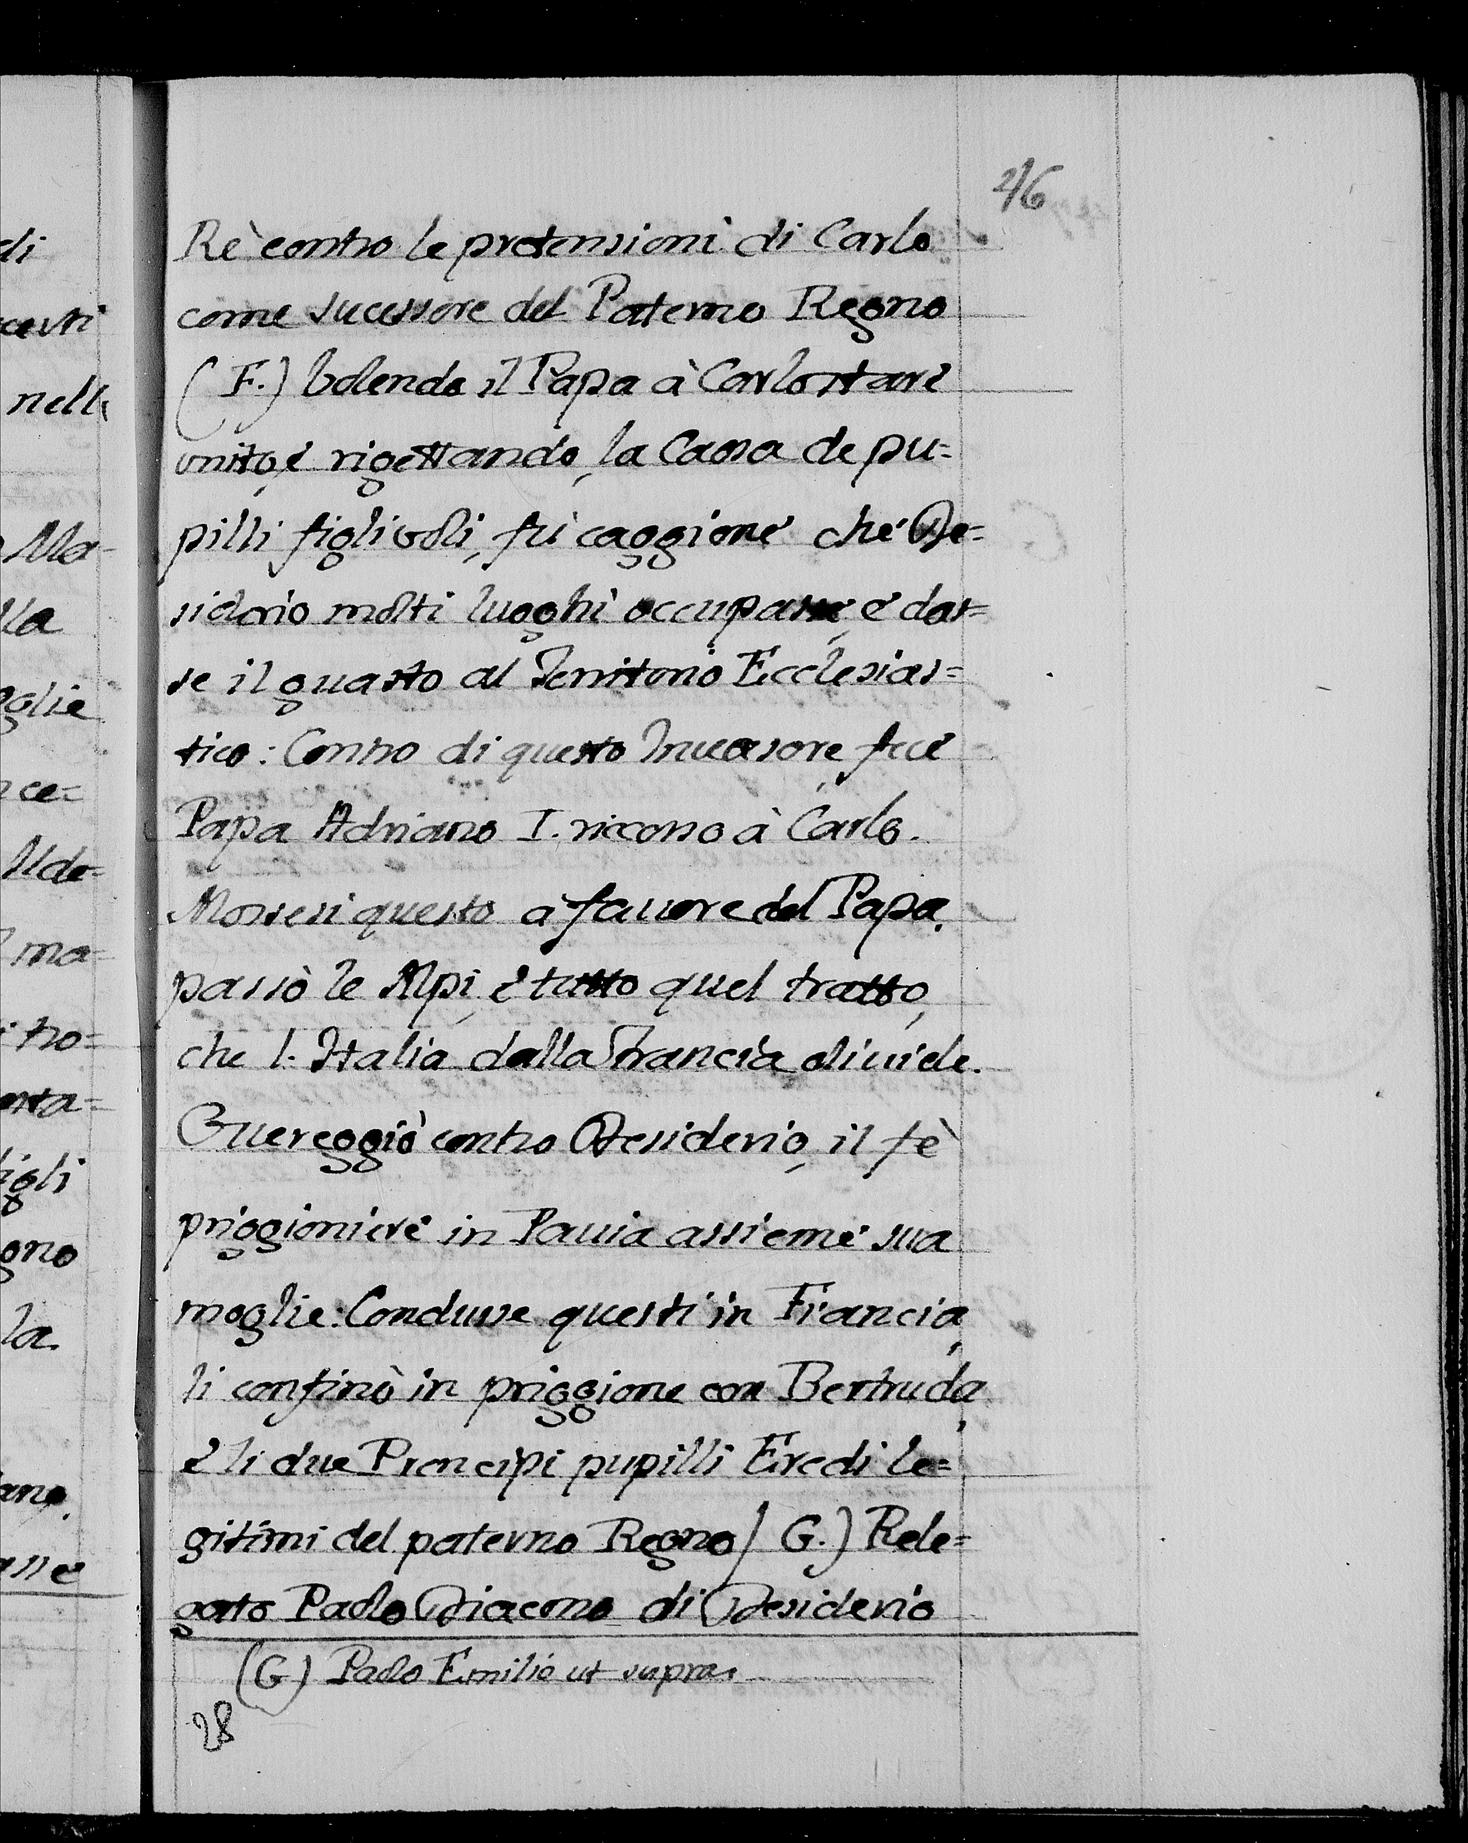 216
Rè contro le pretensioni di Carlo
come sucessore del Paterno Regno
(F.) Volendo il Papa à Carlo stare
unito, è rigettando, la Causa de pu=
pilli figliuoli, fù caggione che De=
siderio molti luoghi occupasse, e das=
se il guasto al Territorio Ecclesias=
tico: Contro di questo Inuasore fece
Papa Adriano I. riccorso à Carlo.
Mossesi questo à fauore del Papa,
passò le Alpi, è tutto quel tratto,
che l'Italia dalla Francia diuide.
Guereggiò contro Desiderio, il fè
priggioniere in Pauia assieme sua
moglie: Condusse questi in Francia,
li confinò in priggione con Bertruda,
è li due Prencipi pupilli Eredi le=
gitimi del paterno Regno (G.) Rele=
gato Paolo Diacono di Desiderio
(G) Paolo Emilio ut supra.
28
di
nell
Ma=
lla
glie
ce=
Ilde=
ma=
tro=
figli
la